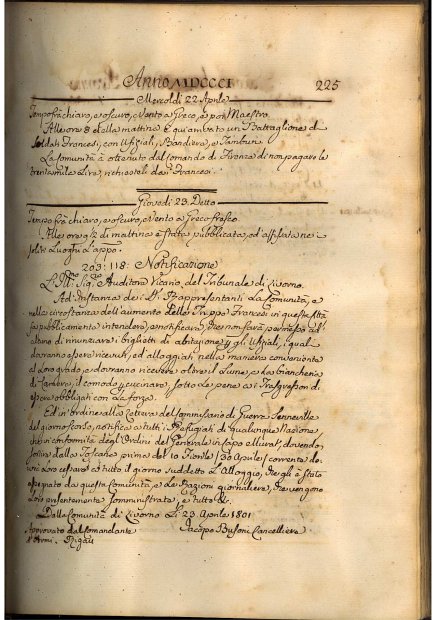 Anno MDCCCI
225
Mercoldi 22 Aprile
Tempo frà chiaro, e oscuro, e Vento a Greco, e poi Maestro.
Alle ore 8 della mattina è quì arrivato un Battaglione di
Soldati Francesi, con Ufiziali, Bandiera, e Tamburi.
La Comunità à ottenuto dal Comando di Firenze di non pagare le
trentamile Lire, richiestoli dai Francesi.
Giovedi 23 Detto
Tempo frà chiaro, e oscuro, e Vento a Greco fresco.
Alle ore 9½ di mattina è stata pubblicata, ed affissata nei
soliti Luoghi L'appo.
203: 118: Notificazione
L'Illmo. Sigre. Auditore Vicario, del Tribunale di Livorno.
Ad Instanza dei Rappresentanti La Comunità, e
nella circostanza dell'aumento delle Truppe Francesi in questa Città
fà pubblicamente intendere, e notificare, Che non sarà permesso ad
alcuno di rinunziare i biglietti di abitazione gl'Ufiziali, i quali
dovranno essere ricevuti, ed alloggiati nella maniera conveniente
al loro grado, e dovranno ricevere oltre il Lume, e da biancheria
di Camera, il comodo cucinare, sotto le pene ai Trasgressori di
essere obbligati con La forza.
Ed in ordine alla Lettera del Commissario di Guerra Senneville
del giorno scorso, notifica a tutti i Refugiati di qualunque Nazione
che in conformità degli Ordini del Generale in Capo Murat, dovendo
sortire dalla Toscana prima del 10 Fiorile /30 Aprile/ corrente do-
vrà Loro cessare a tutto il giorno suddetto L'Alloggio, che gli è stato
assegnato da questa Comunità, e le Razioni giornaliere, che vengono
Loro presentemente somministrate, e tutto &.
Dalla Comunità di Livorno Li. 23 Aprile 1801
Approvato dal Comandante Jacopo Busoni Cancelliere
d'Armi. Rigau